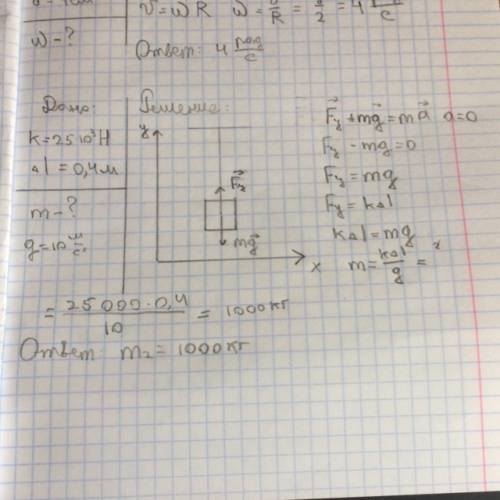 V = ω R ω = υ/R = 8/2 = 4 рад/с
ω - ?
Ответ: 4 рад/с
Дано:
k = 25 10³ Н
Δl = 0,4 м
m - ?
g = 10 м/с
Решение:
y
F⃗у
mg⃗
x
F⃗у + mg⃗ = ma⃗ a = 0
Fу - mg = 0
Fу = mg
Fу = kΔl
kΔl = mg
m = kΔl/g =
= 25 000 · 0,4/10 = 1000 кг
Ответ: m₂ = 1000 кг